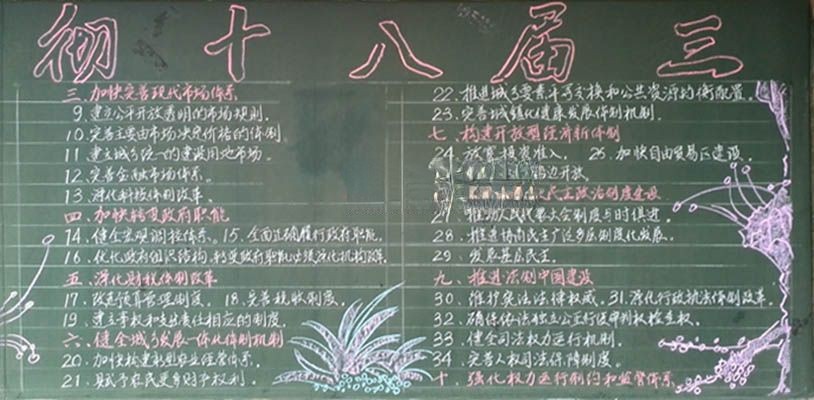 彻十八届三
三、加快完善现代市场体系
9、建立公开开放透明的市场规则。
10、完善主要由市场决定价格的体制
11、建立城乡统一的建设用地市场。
12、完善金融市场体系。
13、深化科技体制改革。
四、加快转变政府职能
14、健全宏观调控体系。15、全面正确履行政府职能。
16、优化政府组织结构，转变政府职能必须深化机构改革
五、深化财税体制改革
17、改进预算管理制度。18、完善税收制度。
19、建立事权和支出责任相应的制度。
六、健全城乡发展一体化体制机制
20、加快构建新型农业经营体系。
21、赋予农民更多财产权利。
22、推进城乡要素平等交换和公共资源均衡配置。
23、完善城镇化健康发展体制机制。
七、构建开放型经济新体制
24、放宽投资准入。25、加快自由贸易区建设。
沿边开放。
民主政治制度建设
27、推动人大代表大会制度与时俱进。
28、推进协商民主广泛多层制度化发展。
29、发展基层民主。
九、推进法制中国建设
30、维护宪法法律权威。31、深化行政执法体制改革。
32、确保依法独立公正行使审判权检查权。
33、健全司法权力运行机制。
34、完善人权司法保障制度。
十、强化权力运行制约和监督体系